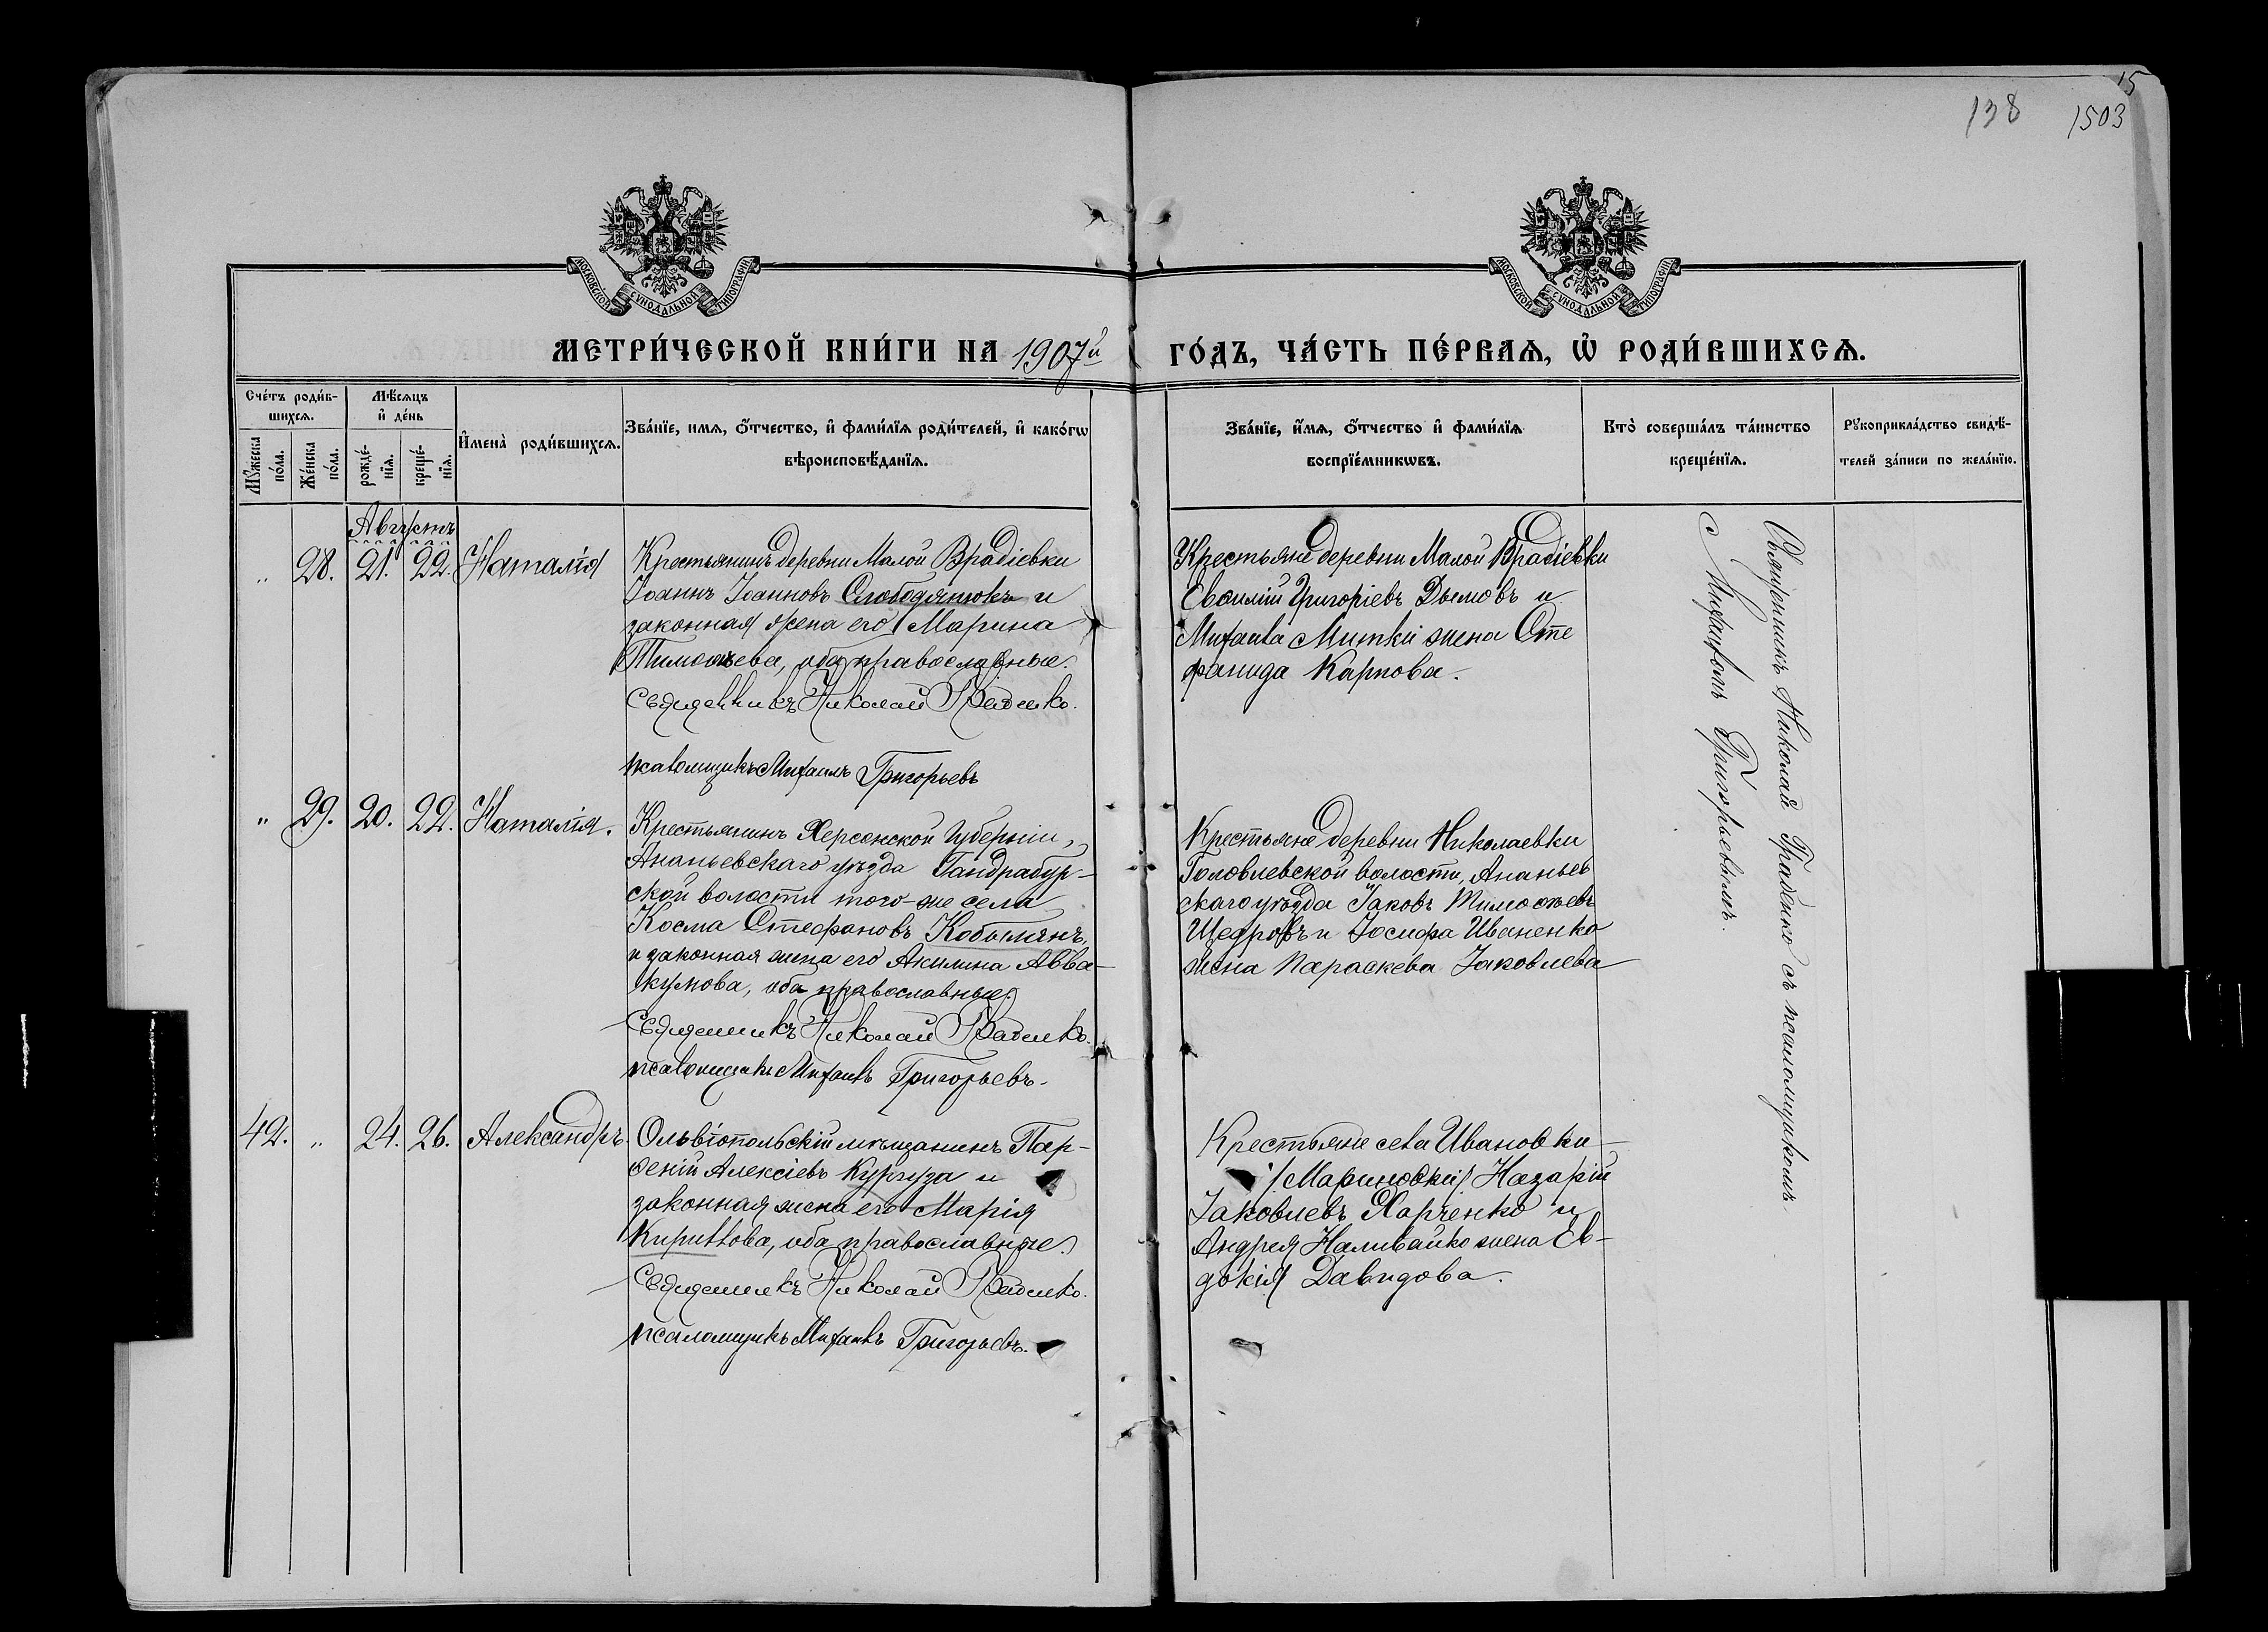 15
138 1503
МОСКОВСКОЙ СѴНОДАЛЬНОЙ ТИПОГРАФІИ
МОСКОВСКОЙ СѴНОДАЛЬНОЙ ТИПОГРАФІИ
МЕТРИ́ЧЕСКОЙ КНИ́ГИ НА 1907й ГО́ДЪ, ЧА́СТЬ ПЕ́РВАѦ, Ѽ РОДИ́ВШИХСѦ.
Сче́тъ роди́в-
шихсѧ.
Мꙋ́жеска
по́ла.
Же́нска
по́ла.
Мѣ́сѧцъ
и҆ де́нь
рожде́-
нїѧ.
креще́-
нїѧ.
И҆мена̀ роди́вшихсѧ.
Зва́нїе, имѧ, ѻ҆́тчество, и҆ фами́лїѧ роди́телей, и҆ како́гѡ
вѣроисповѣ́данїѧ.
Зва́нїе, и҆́мѧ, ѻ҆́тчество и҆ фами́лїѧ
воспрїе́мникѡвъ.
Кто̀ соверша́лъ та́инство
креще́нїѧ.
Рꙋкоприкла́дство свидѣ́-
телей за́писи по жела́нїю.
Августъ
" 28. 21. 22. Наталія
Крестьянинъ деревни Малой Врадіевки
Іоаннъ Іоанновъ Слободянюкъ и
законная жена его Марина
Тимоѳеева, оба православные.
Священникъ Николай Граденко.
псаломщикъ Михаилъ Григорьевъ
Крестьяне деревни Малой Врадіевки
Евфимій Григоріевъ Дымовъ и
Михаила Митки жена Сте
фанида Карпова.
" 29. 20. 22. Наталія.
Крестьянинъ Херсонской губерніи,
Ананьевскаго уѣзда Гандрабур-
ской волости того-же села
Косма Стефановъ Кобылянъ,
и законная жена его Акилина Авва-
кумова, оба православные.
Священникъ Николай Граденко.
псаломщикъ Михаилъ Григорьевъ.
Крестьяне деревни Николаевки
Головлевской волости, Ананьев
скаго уѣзда Іаковъ Тимоѳеевъ
Щедровъ и Іосифа Иваненко
жена Параскева Іаковлева
42. " 24. 26. Александръ.
Ольвіопольскій мѣщанинъ Пар-
ѳеній Алексіевъ Кургуза и
законная жена его Марія
Кириллова, оба православные.
Священникъ Николай Граденко.
псаломщикъ Михаилъ Григорьевъ.
Крестьяне села Ивановки
/Мариновки/ Назарій
Іаковлевъ Харченко и
Андрея Наливайко жена Ев-
докія Давидова.
Священникъ Николай Граденко съ псаломщикомъ
Михаиломъ Григорьевымъ.